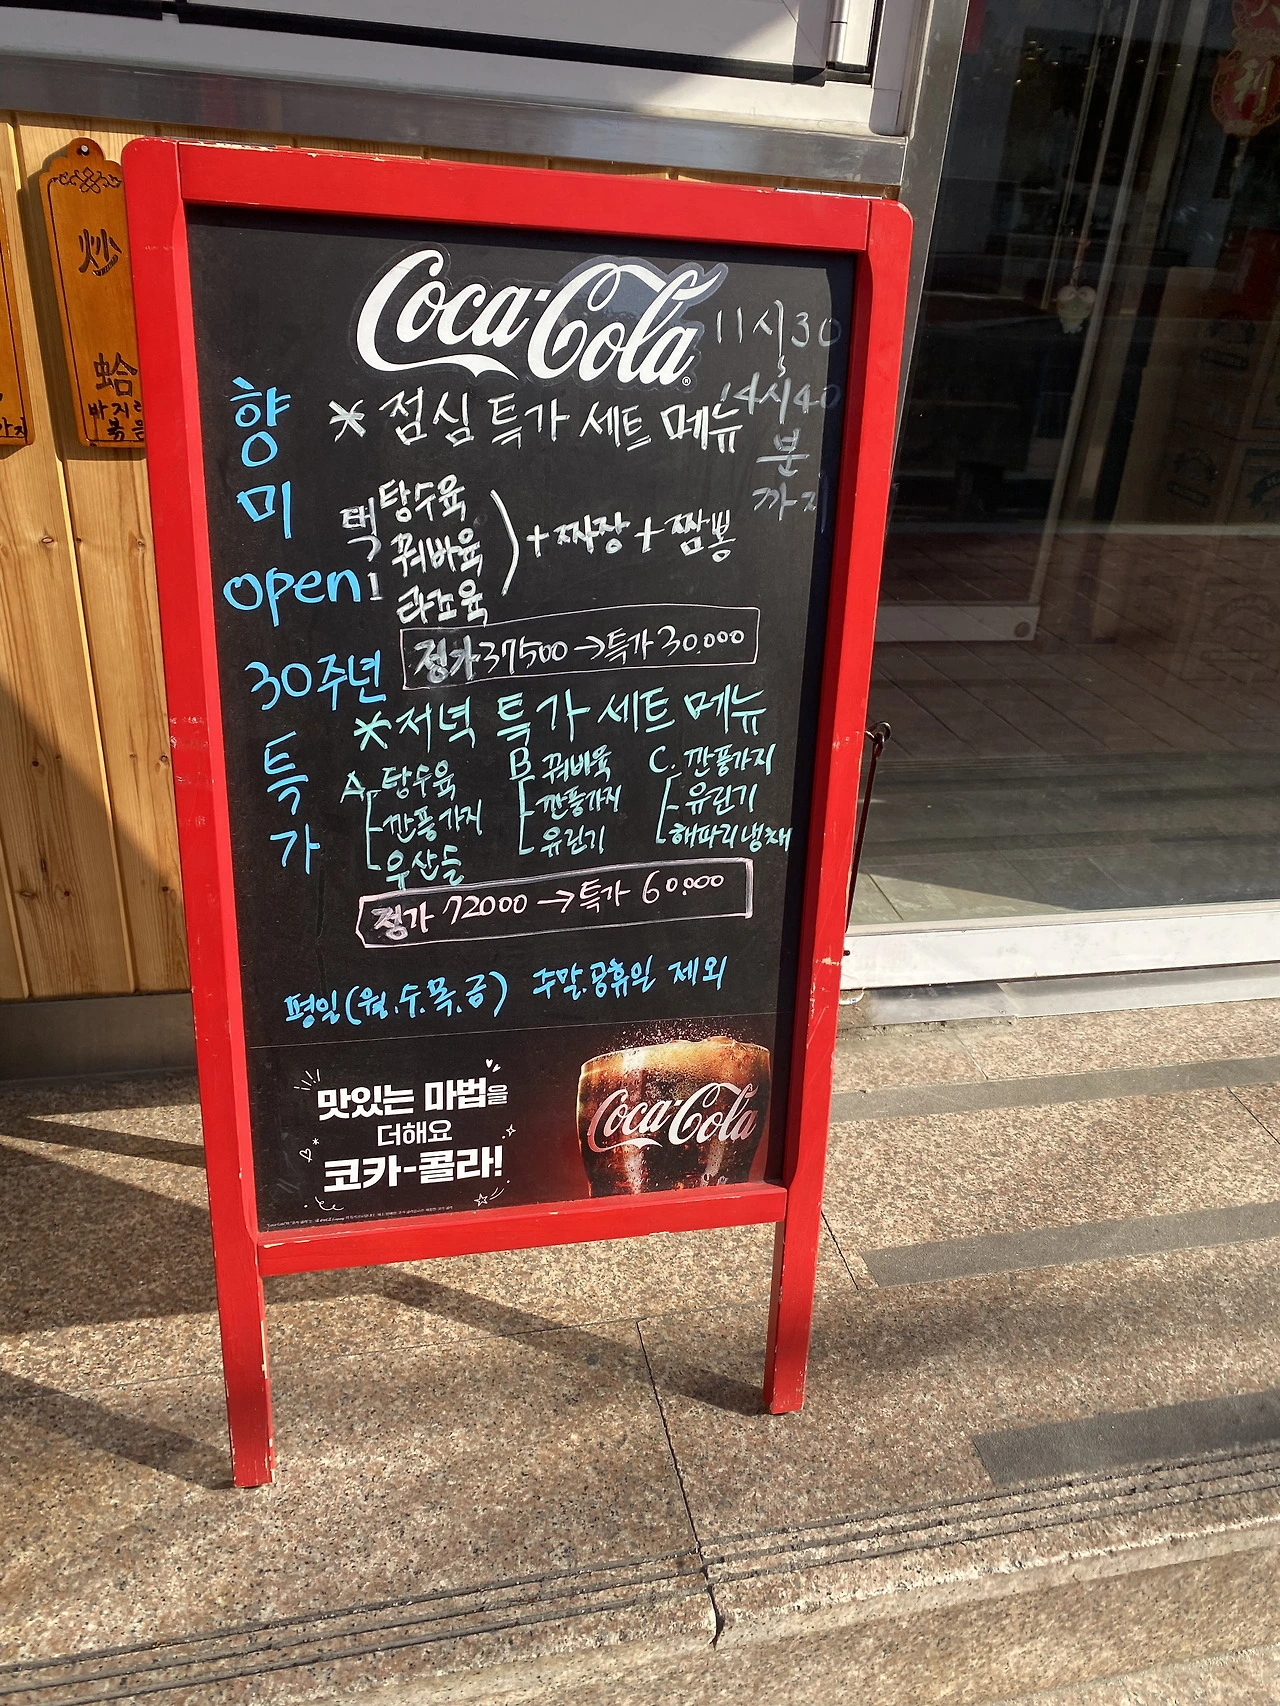 Coca-Cola
11시30
14시40
분
까지
향
미
open
30주년
특
가
* 점심 특가 세트 메뉴
택1
탕수육
꿔바육
라조육
+ 짜장 + 짬뽕
정가 37500 → 특가 30.000
* 저녁 특가 세트 메뉴
A. 탕수육
깐풍가지
우산들
B. 꿔바육
깐풍가지
유린기
C. 깐풍가지
유린기
해파리냉채
정가 72000 → 특가 60.000
평일(월.수.목.금) 주말.공휴일 제외
맛있는 마법을
더해요
코카-콜라!
Coca-Cola
炒
蛤
바지락
볶음
利